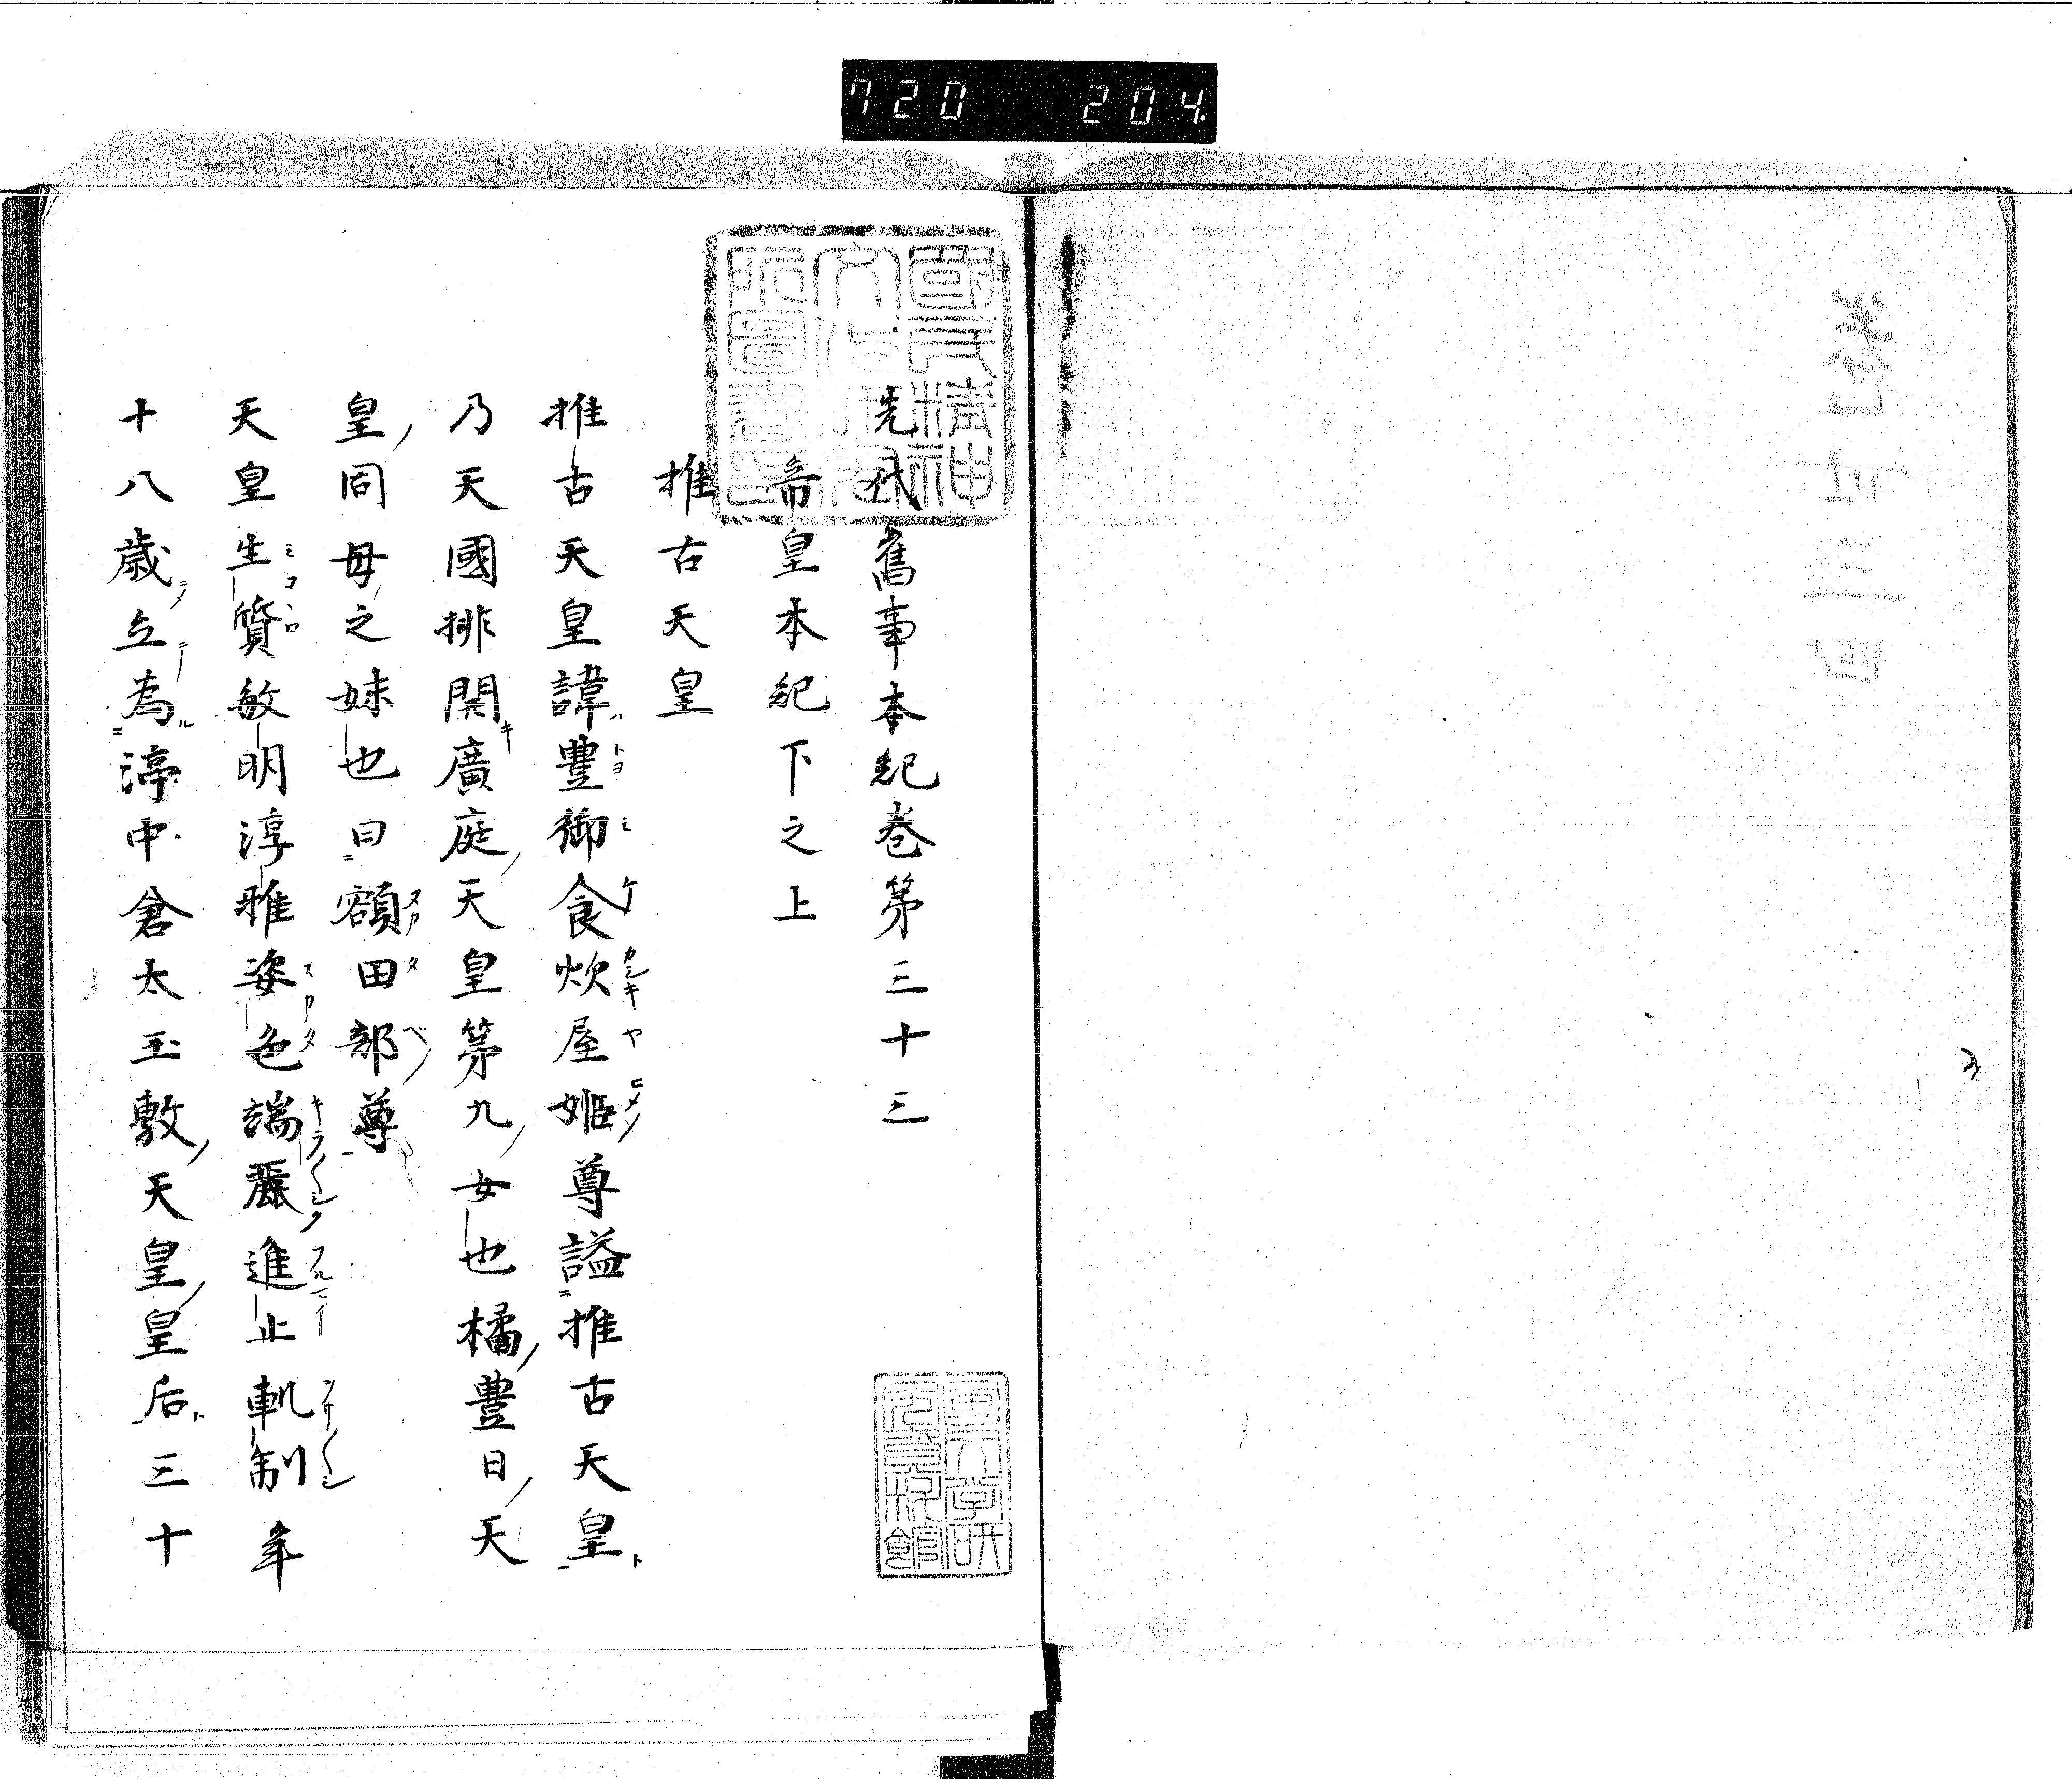 720 204
先代舊事本紀巻第三十三
帝皇本紀下之上
推古天皇
推古天皇諱豊御食炊屋姫尊謚推古天皇
乃天國排開廣庭天皇第九女也橘豊日天
皇同母之妹也曰額田部尊
天皇生質敏明淳雅姿色端麗進止軌制年
十八歳立為渟中倉太玉敷天皇皇后三十